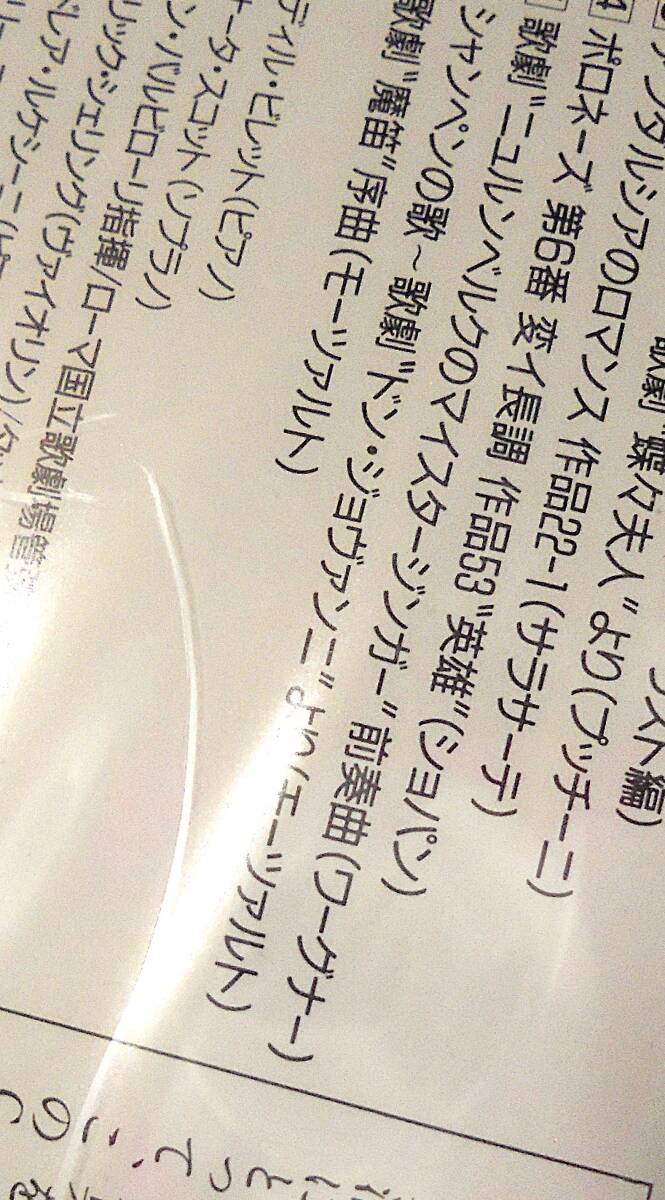 スト編)
歌劇“蝶々夫人”より(プッチーニ)
アンダルシアのロマンス 作品22-1(サラサーテ)
4 ポロネーズ 第6番 変イ長調 作品53“英雄”(ショパン)
歌劇“ニュルンベルクのマイスタージンガー”前奏曲(ワーグナー)
シャンペンの歌~歌劇“ドン・ジョヴァンニ”より(モーツァルト)
歌劇“魔笛”序曲(モーツァルト)
ディル・ビレット(ピアノ)
ータ・スコット(ソプラノ)
ン・バルビローリ指揮/ローマ国立歌劇場管弦
リック・シェリング(ヴァイオリン)/
レア・ルケシーニ(ピ
にとって、この